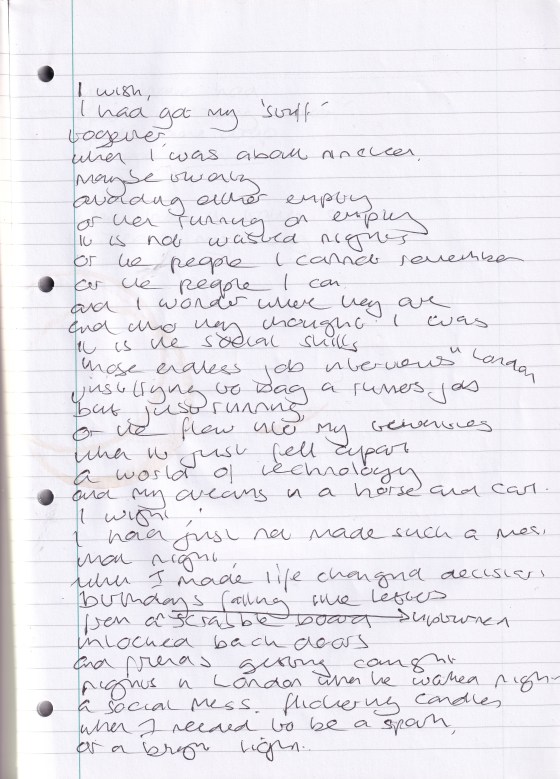 I wish,
I had got my 'stuff'
together
when I was about nineteen.
maybe twenty
avoiding either empty
or then running on empty
it is not wasted nights
or the people I cannot remember
or the people I can.
and I wonder where they are
and who they thought I was
it is the social skills
those endless job interviews in London
just trying to bag a runners job
but just running
or the flaw into my
when it just fell apart
a world of technology
and my dreams in a horse and cart.
I wish,
I had just not made such a mess
that night,
when I made life changing decisions
birthdays falling like letters
from a scrabble board upturned
unlocked back doors
and friends getting caught
nights in London when he walked
a social mess. flickering candles
when I needed to be a spark,
or a bright light...